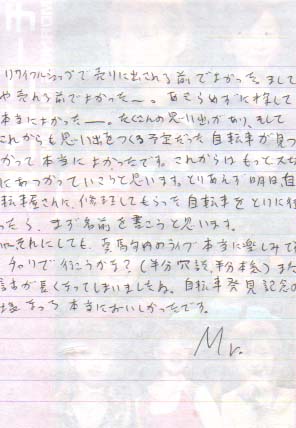 リサイクルショップで売りに出される前でよかった。まして
や売れる前でよかったー。あきらめずに探して
本当によかったー。たくさんの思い出があり、そして
これからも思い出をつくる予定だった自転車が見つ
かって本当によかったです。これからはもっと大切
にあつかっていこうと思います。とりあえず明日、自
転車屋さんに、修理してもらった自転車をとりに行
ったら、まず名前を書こうと思います。
それにしても、真駒内のライブ本当に楽しみで
チャリで行こうかな？(半分冗談、半分本気) また
話が長くなってしまいましたね。自転車発見記念の
本当においしかったです。
Mr.